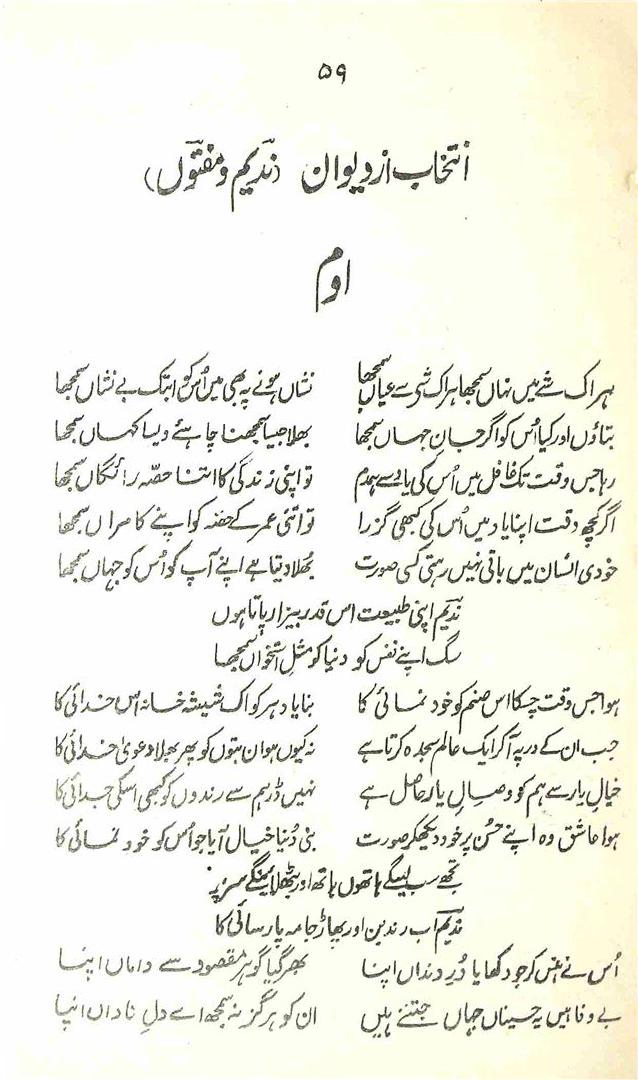 ۵۹
انتخاب از دیوان (ندیم و مفتوں)
اوم
ہر اک شے میں نہاں سمجھا ہر اک شی سے عیاں سمجھا نشاں ہونے پہ بھی میں اُس کو ابتک بے نشاں سمجھا
بتاؤں اور کیا اُس کو اگر جانِ جہاں سمجھا بھلا جیسا سمجھنا چاہئے ویسا کہاں سمجھا
رہا جس وقت تک غافل میں اُس کی یاد سے ہمدم تو اپنی زندگی کا اتنا حصّہ رائگاں سمجھا
اگر کچھ وقت اپنا یاد میں اُس کی کبھی گزرا تو اتنی عمر کے حصّہ کو اپنے کامراں سمجھا
خودی انساں میں باقی نہیں رہتی کسی صورت بُھلا دیتا ہے اپنے آپ کو اُس کو جہاں سمجھا
ندیم اپنی طبیعت اس قدر بیزار پاتا ہوں
سگ اپنے نفس کو دنیا کو مثلِ استخواں سمجھا
ہوا جس وقت چسکا اس صنم کو خود نمائی کا بنایا دہر کو اک شیشہ خانہ اس خدائی کا
جب ان کے در پہ آکر ایک عالم سجدہ کرتا ہے نہ کیوں ہو ان بتوں کو پھر بھلا دعویٰ خدائی کا
خیالِ یار سے ہم کو وصالِ یار حاصل ہے نہیں ڈر ہم سے رندوں کو کبھی اسکی جدائی کا
ہوا عاشق وہ اپنے حُسن پر خود دیکھکر صورت بنی دُنیا خیال آیا جو اُس کو خود نمائی کا
تجھے سب لینگے ہاتھوں ہاتھ اور بٹھلائینگے سر پر
ندیم اب رند بن اور پھاڑ جامہ پارسائی کا
اُس نے ہنس کر جو دکھایا دُرِ دنداں اپنا بھر گیا گوہر مقصود سے داماں اپنا
بے وفا ہیں یہ حسیناں جہاں جتنے ہیں ان کو ہرگز نہ سمجھ اے دلِ ناداں اپنا